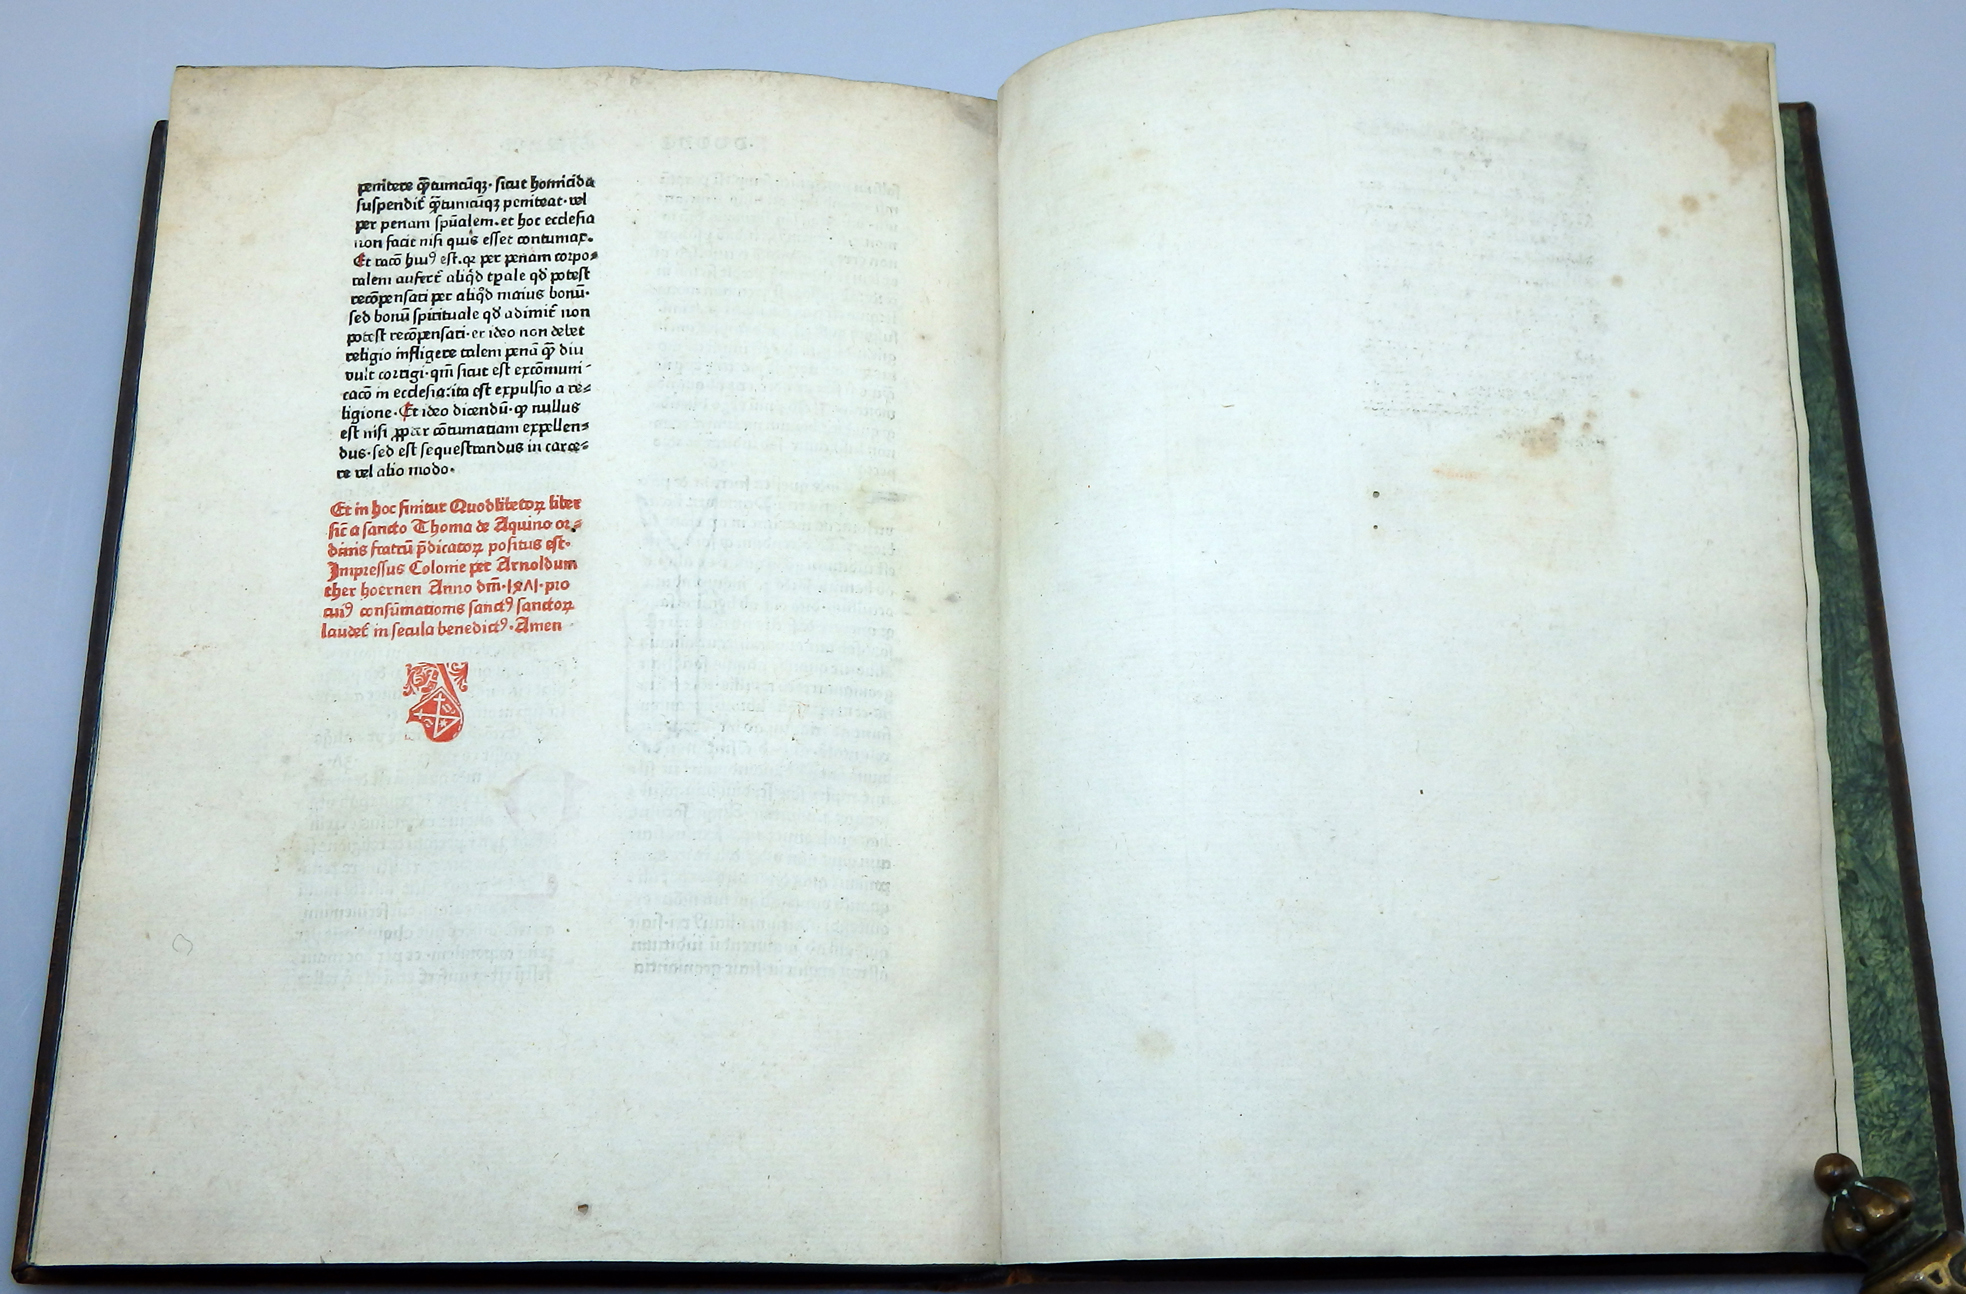 penitere qͣ̄tumcūqꝫ· sicut homicida
suspendit᷑ qͣ̄tumcūqꝫ peniteat· vel
per penam spūalem·et hoc ecclesia
non facit nisi quis esset contumax.
Et racō huiꝰ est.qꝛ per penam corpo⸗
talem aufert᷑ aliqͥd tp̱ale qd̕ potest
recōpensari per aliqͦd maius bonū·
sed bonū spirituale qd̕ adimit᷑ non
potest recōpensari·et ideo non debet
religio infligere talem penā qͣ̄ diu
vult corrigi·qm̄ sicut est excōmuni⸗
cacō in ecclesia:ita est expulsio a re⸗
ligione·Et ideo dicendū·ꝙ nullus
est nisi ꝓpter cōtumatiam expellen⸗
dus·sed est sequestrandus in carce⸗
re vel alio modo·
Et in hoc finitur Quodlibetoꝝ liber
sic̄ a sancto Thoma de Aquino or⸗
dinis fratrū p̄dicatoꝝ positus est·
Impressus Colonie per Arnoldum
ther hoernen Anno dm̄·1ꝝΛ1·pro
cuiꝰ consūmationis sanctꝰ sanctoꝝ
laudet᷑ in secula benedictꝰ·Amen